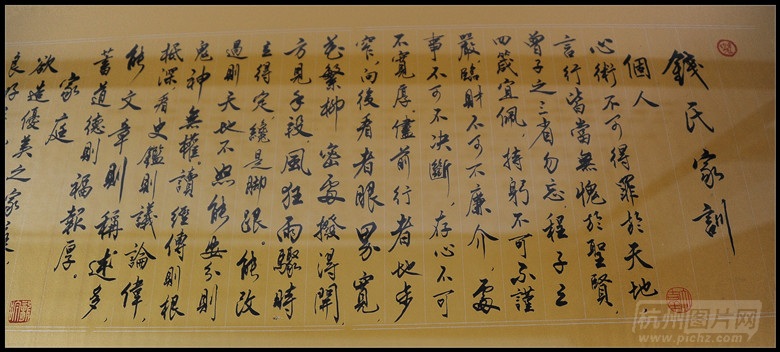 錢氏家訓
個人
心術不可得罪於天地
言行皆當無愧於聖賢，
曾子之三省勿忘。程子之
四箴宜佩，持躬不可不謹
嚴，臨財不可不廉介，處
事不可不決斷，存心不可
不寬厚，儘前行者地步
窄，向後看者眼界寬，
花繁柳密處撥得開，
方見手段，風狂雨驟時
立得定，纔是脚跟。能改
過則天地不怒，能安分則
鬼神無權，讀經傳則根
柢深，看史鑑則議論偉，
能文章則稱述多，
蓄道德則福報厚。
家庭
欲造優美之家庭，
良好
杭州图片网
www.pichz.com